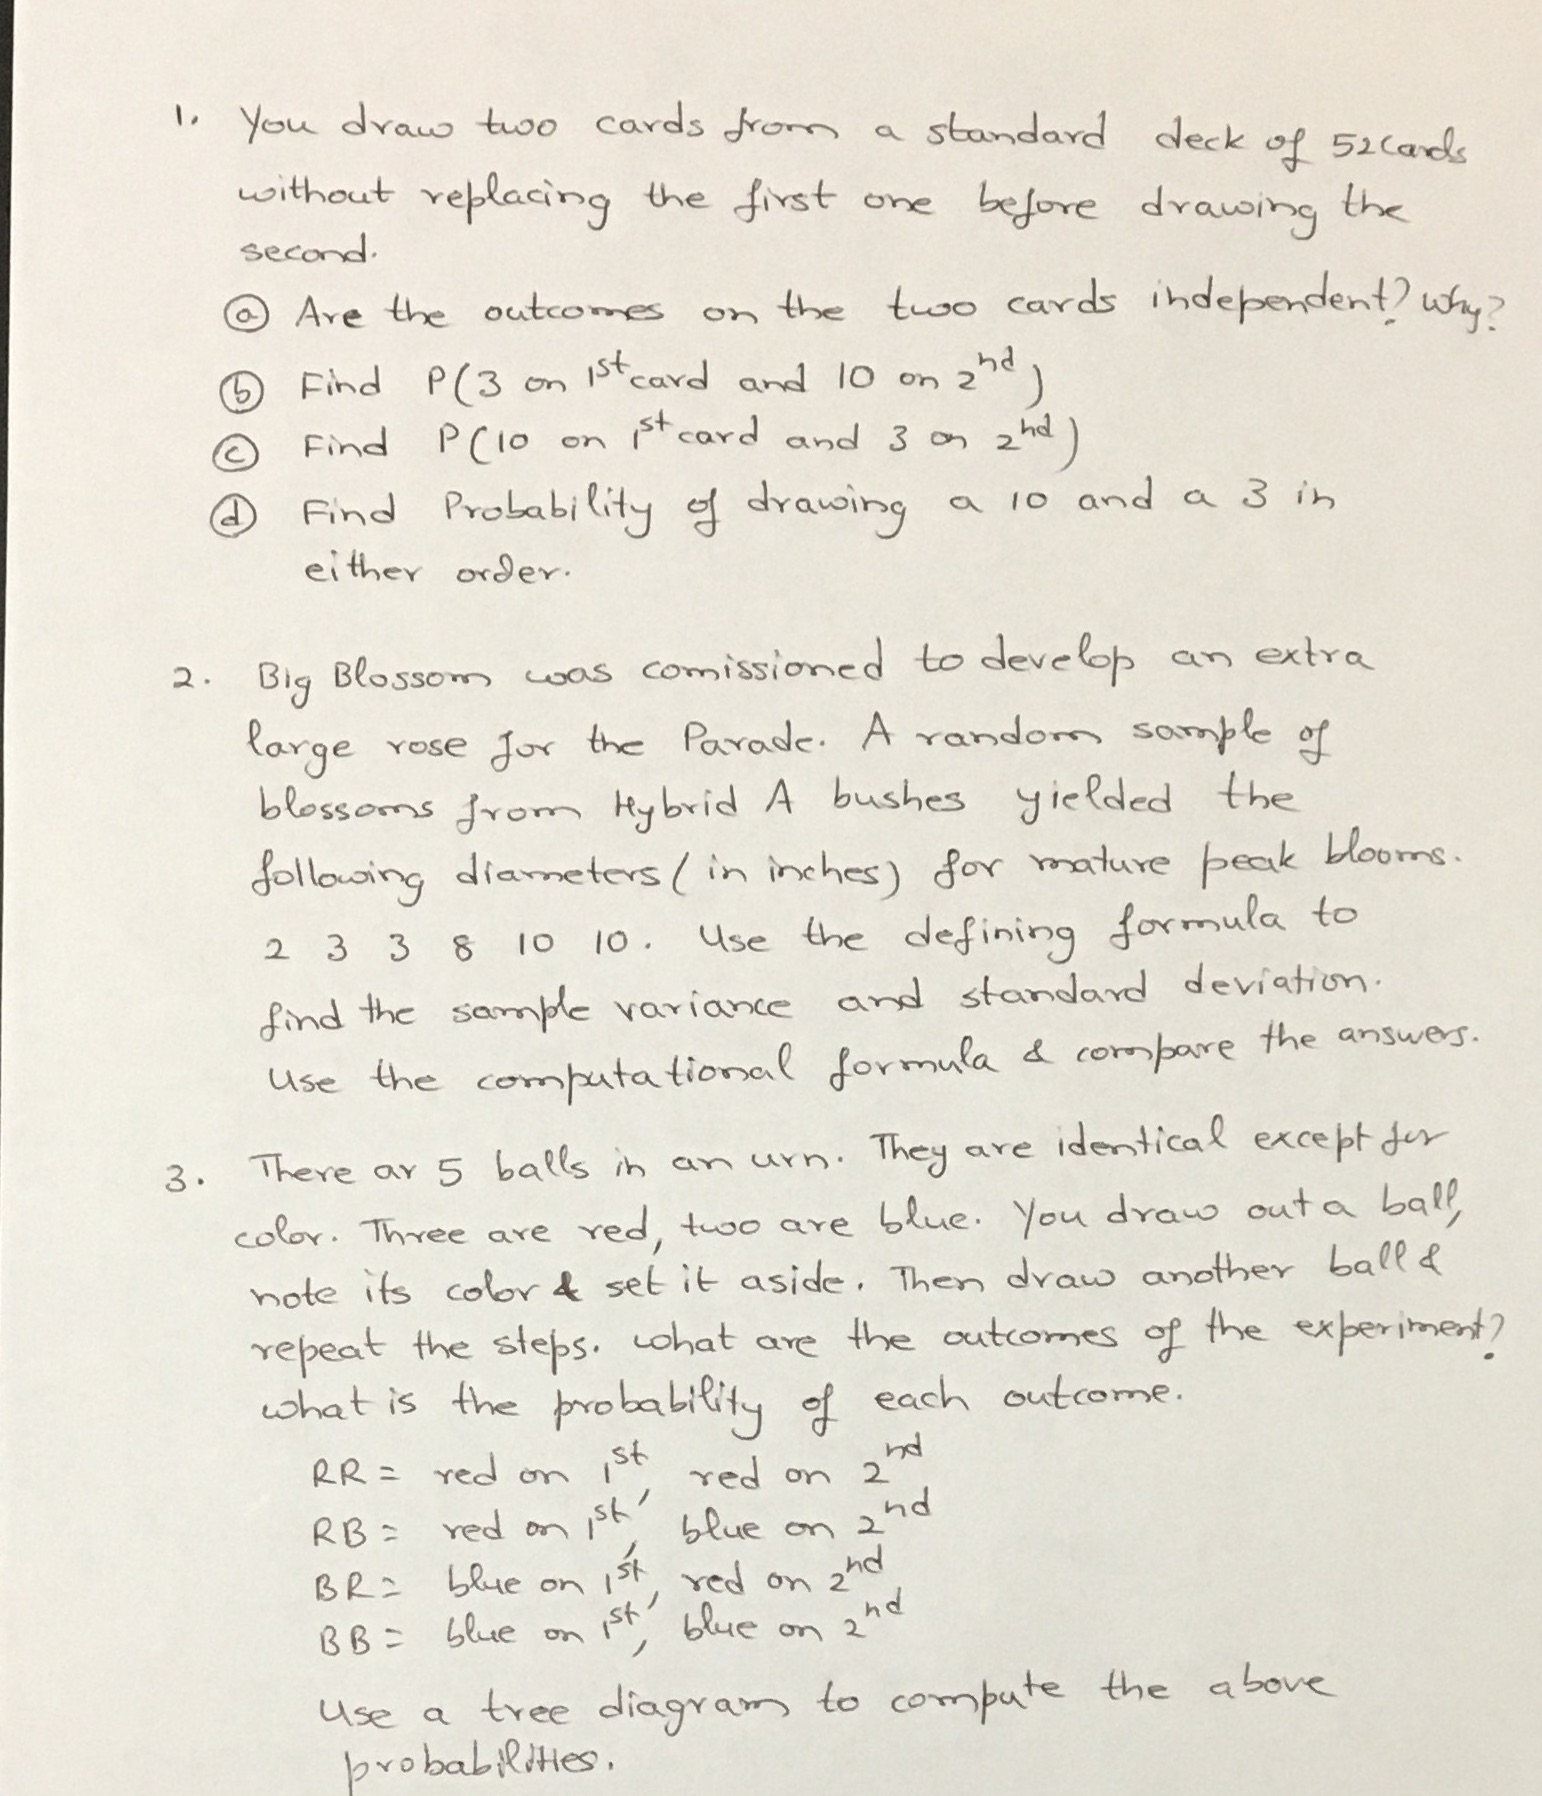 1. You draw two cards from a standard deck of 52 cards
without replacing the first one before drawing the
second.
(a) Are the outcomes on the two cards independent? Why?
(b) Find P(3 on 1st card and 10 on 2nd)
(c) Find P(10 on 1st card and 3 on 2nd)
(d) Find Probability of drawing a 10 and a 3 in
either order.
2. Big Blossom was comissioned to develop an extra
large rose for the Parade. A random sample of
blossoms from Hybrid A bushes yielded the
following diameters (in inches) for mature peak blooms.
2 3 3 8 10 10. Use the defining formula to
find the sample variance and standard deviation.
Use the computational formula & compare the answers.
3. There ar 5 balls in an urn. They are identical except for
color. Three are red, two are blue. You draw out a ball,
note its color & set it aside. Then draw another ball &
repeat the steps. what are the outcomes of the experiment?
what is the probability of each outcome.
RR = red on 1st, red on 2nd
RB = red on 1st, blue on 2nd
BR = blue on 1st, red on 2nd
BB = blue on 1st, blue on 2nd
Use a tree diagram to compute the above
probabilities.